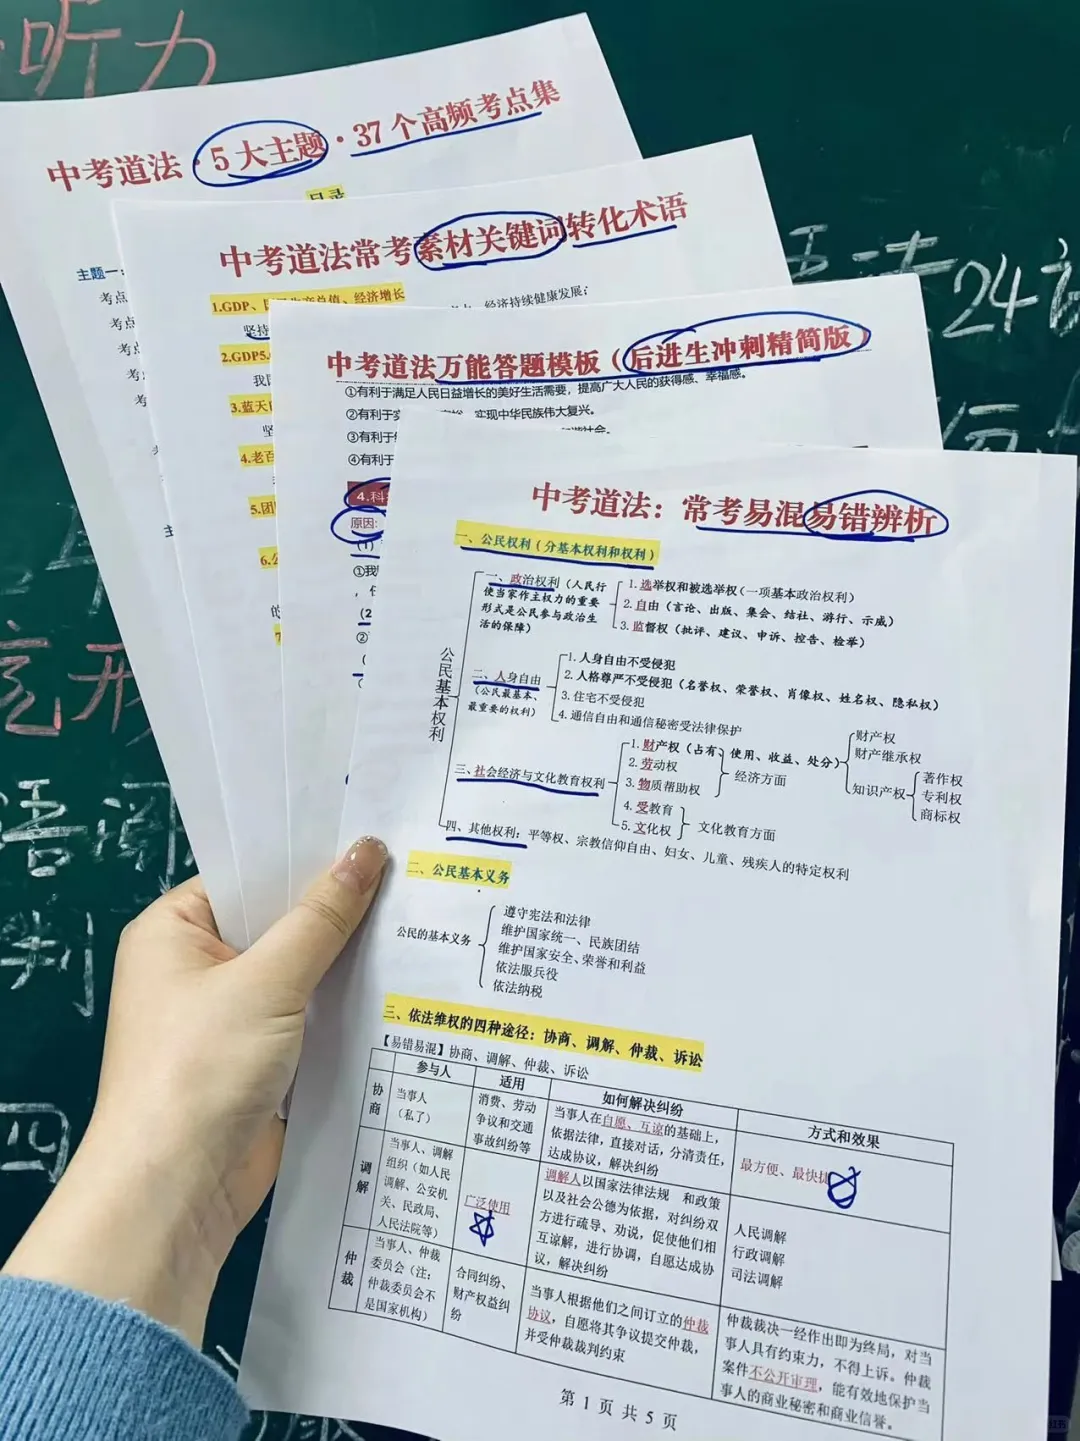 听力
中考道法·5大主题·37个高频考点集
目录
主题一:
考点
考点
考点
考
考
中考道法常考素材关键词转化术语
1.GDP、国内生产总值、经济增长
经济持续健康发展;
坚持
2.GDP5.
我
3.蓝天
坚
4.老百
5.团
6.公
的
7
中考道法万能答题模板(后进生冲刺精简版)
①有利于满足人民日益增长的美好生活需要,提高广大人民的获得感、幸福感。
②有利于实
实现中华民族伟大复兴。
③有利于
④有利于
4.科
原因:
(1)
①我
(2
②
中考道法:常考易混易错辨析
一、公民权利(分基本权利和权利)
公民基本权利
一、政治权利(人民行
使当家作主权力的重要
形式是公民参与政治生
活的保障)
1.选举权和被选举权(一项基本政治权利)
2.自由(言论、出版、集会、结社、游行、示威)
3.监督权(批评、建议、申诉、控告、检举)
二、人身自由
(公民最基本、
最重要的权利)
1.人身自由不受侵犯
2.人格尊严不受侵犯(名誉权、荣誉权、肖像权、姓名权、隐私权)
3.住宅不受侵犯
4.通信自由和通信秘密受法律保护
三、社会经济与文化教育权利
1.财产权(占有、使用、收益、处分)
2.劳动权
3.物质帮助权
经济方面
财产权
财产继承权
知识产权
著作权
专利权
商标权
4.受教育
5.文化权
文化教育方面
四、其他权利:平等权、宗教信仰自由、妇女、儿童、残疾人的特定权利
二、公民基本义务
公民的基本义务
遵守宪法和法律
维护国家统一、民族团结
维护国家安全、荣誉和利益
依法服兵役
依法纳税
三、依法维权的四种途径:协商、调解、仲裁、诉讼
【易错易混】协商、调解、仲裁、诉讼
参与人
适用
如何解决纠纷
方式和效果
协商
当事人
(私了)
消费、劳动
争议和交通
事故纠纷等
当事人在自愿、互谅的基础上,
依据法律,直接对话,分清责任,
达成协议,解决纠纷
最方便、最快捷
调解
当事人、调解
组织(如人民
调解、公安机
关、民政局、
人民法院等)
广泛使用
调解人以国家法律法规 和政策
以及社会公德为依据,对纠纷双
方进行疏导、劝说,促使他们相
互谅解,进行协调,自愿达成协
议,解决纠纷
人民调解
行政调解
司法调解
仲裁
当事人、仲裁
委员会(注:
仲裁委员会不
是国家机构)
合同纠纷、
财产权益纠
纷
当事人根据他们之间订立的仲裁
协议,自愿将其争议提交仲裁,
并受仲裁裁判约束
仲裁裁决一经作出即为终局,对当
事人具有约束力,不得上诉。仲裁
案件不公开审理,能有效地保护当
事人的商业秘密和商业信誉。
第 1 页 共 5 页
24
语阅
判
四